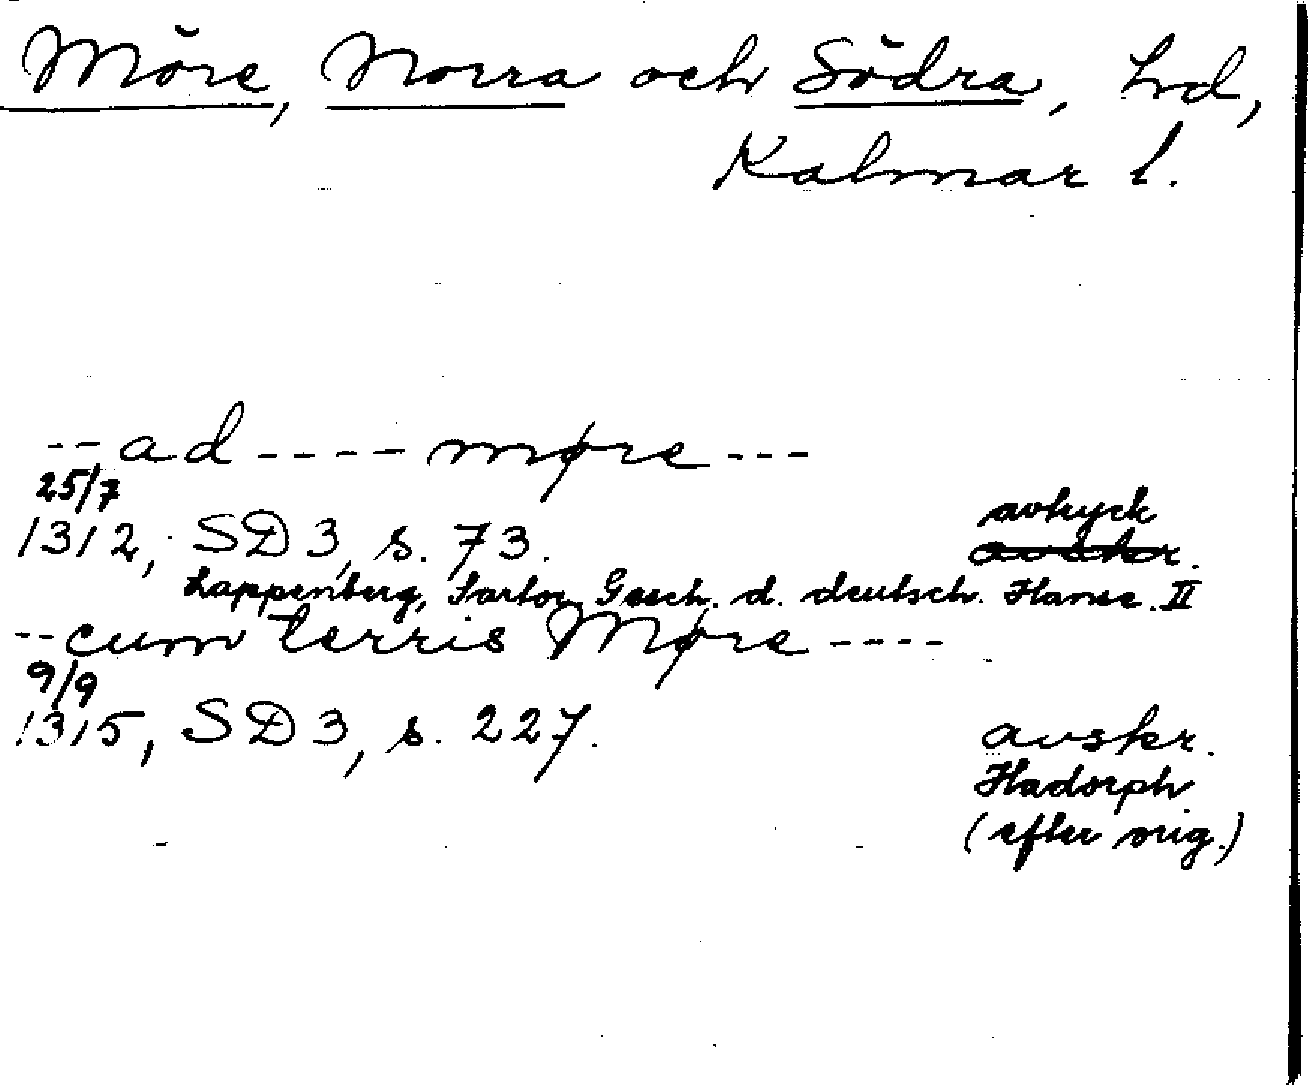 Möre, Norra och Södra, hd,
Kalmar l.
--ad----møre---
25/7
1312, SD 3, s. 73. avtryck
avskr.
Lappenberg, Sartor Gesch. d. deutsch. Hanse II
--cum terris Møre----
9/9
1315, SD 3, s. 227. avskr.
Hadorph
(efter orig.)